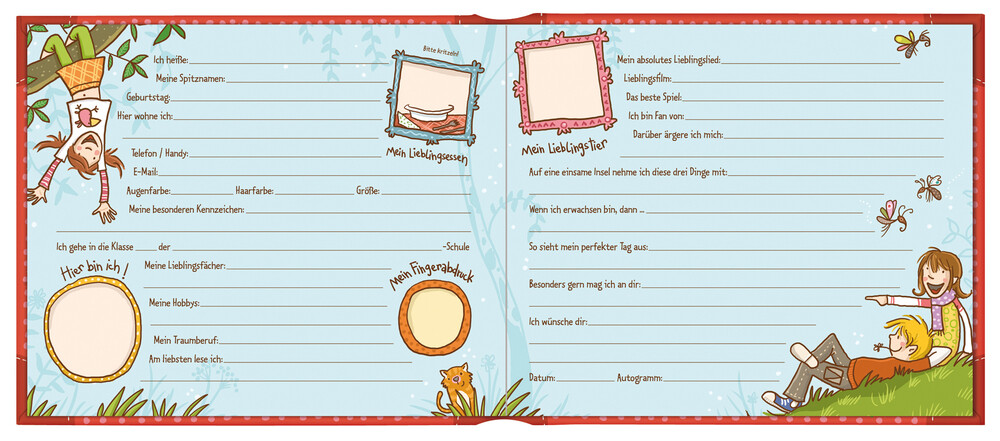 Ich heiße:
Meine Spitznamen:
Geburtstag:
Hier wohne ich:
Bitte kritzeln!
Mein Lieblingsessen
Telefon / Handy:
E-Mail:
Augenfarbe: Haarfarbe: Größe:
Meine besonderen Kennzeichen:
Ich gehe in die Klasse der -Schule
Hier bin ich!
Meine Lieblingsfächer:
Mein Fingerabdruck
Meine Hobbys:
Mein Traumberuf:
Am liebsten lese ich:
Mein Lieblingstier
Mein absolutes Lieblingslied:
Lieblingsfilm:
Das beste Spiel:
Ich bin Fan von:
Darüber ärgere ich mich:
Auf eine einsame Insel nehme ich diese drei Dinge mit:
Wenn ich erwachsen bin, dann ...
So sieht mein perfekter Tag aus:
Besonders gern mag ich an dir:
Ich wünsche dir:
Datum: Autogramm: